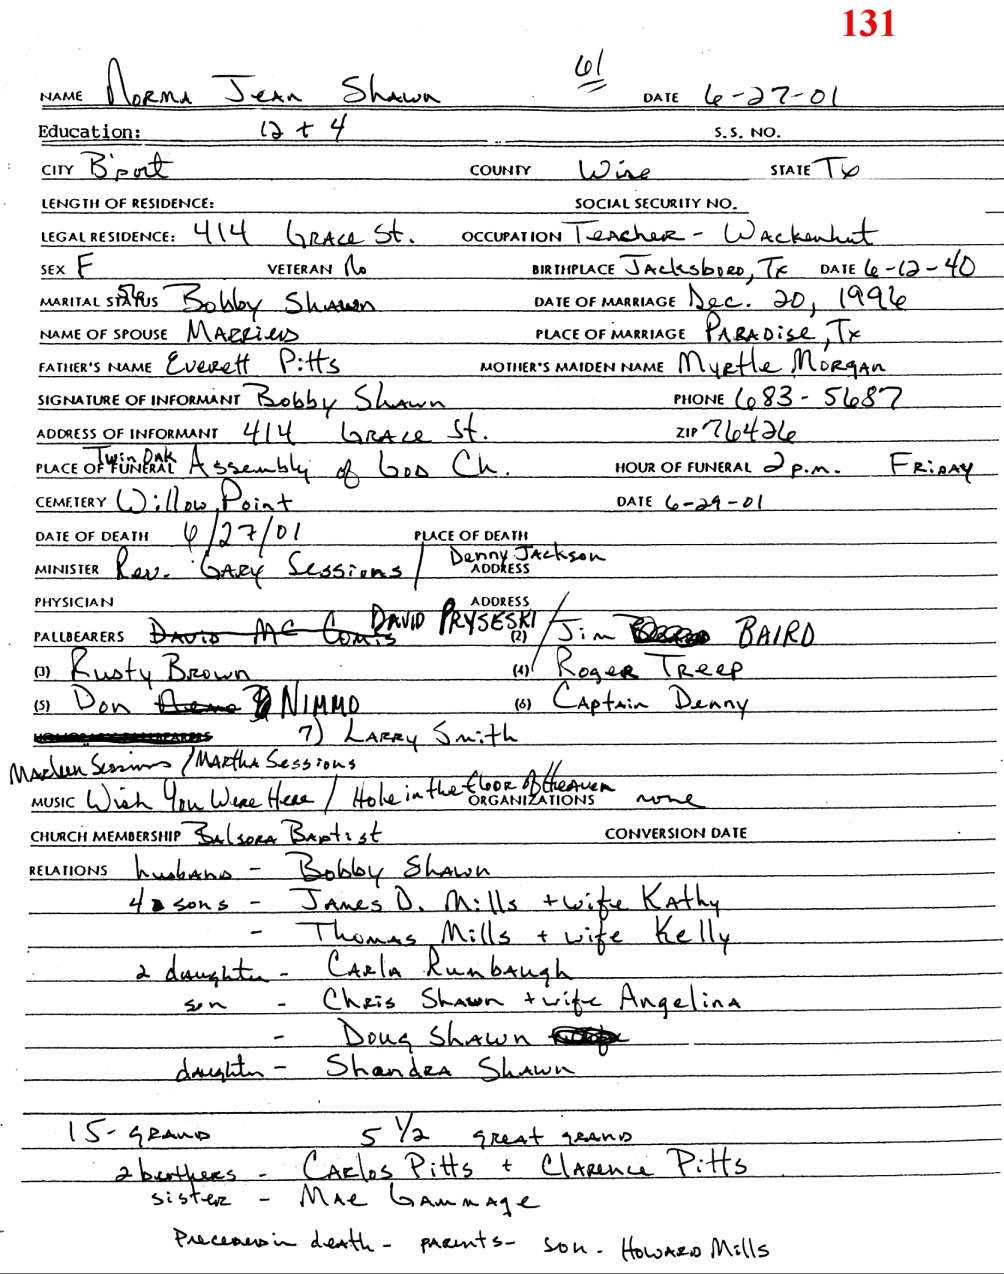 131
61
NAME Norma Jean Shawn DATE 6-27-01
Education: 12 + 4 S.S. NO.
CITY B'port COUNTY Wise STATE Tx
LENGTH OF RESIDENCE: SOCIAL SECURITY NO.
LEGAL RESIDENCE: 414 Grace St. OCCUPATION Teacher - Wackenhut
SEX F VETERAN No BIRTHPLACE Jacksboro, Tx DATE 6-12-40
MARITAL STATUS Bobby Shawn DATE OF MARRIAGE Dec. 20, 1996
NAME OF SPOUSE Married PLACE OF MARRIAGE Paradise, Tx
FATHER'S NAME Everett Pitts MOTHER'S MAIDEN NAME Myrtle Morgan
SIGNATURE OF INFORMANT Bobby Shawn PHONE 683-5687
ADDRESS OF INFORMANT 414 Grace St. ZIP 76426
PLACE OF FUNERAL Twin Oak Assembly of God Ch. HOUR OF FUNERAL 2 p.m. Friday
CEMETERY Willow Point DATE 6-29-01
DATE OF DEATH 6/27/01 PLACE OF DEATH
MINISTER Rev. Gary Sessions / Denny Jackson ADDRESS
PHYSICIAN ADDRESS
PALLBEARERS David McComis David PRYSESKI (2) Jim BAIRD
(3) Rusty Brown (4) Roger Treep
(5) Don NIMMO (6) Captain Denny
HONORARY PALLBEARERS 7) Larry Smith
Marleen Sessions / Martha Sessions
MUSIC Wish You Were Here / Hole in the floor of Heaven ORGANIZATIONS none
CHURCH MEMBERSHIP Balsora Baptist CONVERSION DATE
RELATIONS husband - Bobby Shawn
4 sons - James D. Mills + wife Kathy
- Thomas Mills + wife Kelly
2 daughter - Carla Rumbaugh
son - Chris Shawn + wife Angelina
- Doug Shawn
daughter - Shandra Shawn
15 - grand 5 1/2 great grand
2 brothers - Carlos Pitts + Clarence Pitts
sister - Mae Gammage
Preceded in death - parents - son - Howard Mills